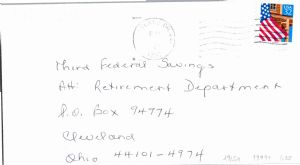 USA 32
Third Federal Savings
Att: Retirement Department
P.O. Box 94774
Cleveland
Ohio 44101-4974